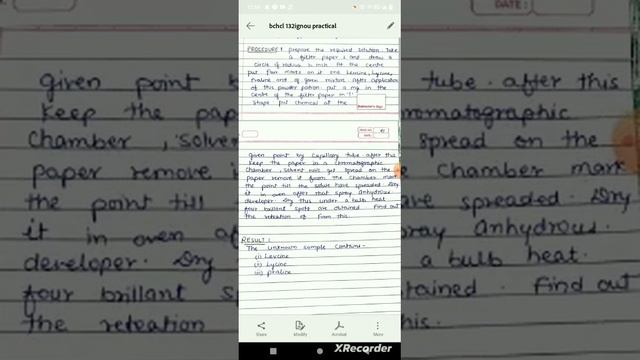 bchcl 132ignou practical
DATE:
PROCEDURE: prepare the required solution. Take
a filter paper and draw a
circle of radius in the centre
put four marks on it one Leucine, Lycine,
Proline and of given mixture. After application
of this powder potion put a mg in the
centre of the filter paper in "I"
shape put chemical at the
given point by Capillary tube. after this
keep the paper in a chromatographic
chamber, solvent will get spread on the
paper remove it from the chamber mark
the point till the solute have spreaded. Dry
it in oven after that spray Anhydrous
developer. Dry this under a bulb heat
four brillant spots are obtained. Find out
the reteation of from this.
RESULT:
The unknown sample contains-
(i) Leucine
(ii) Lycine
(iii) proline
Share
Modify
Acrobat
More
XRecorder
given point b
tube. after this
Keep the pap
romatographic
chamber, solve
spread on the
paper remove i
chamber mark
the point till
ve spreaded. Dry
it in oven af
ray anhydrous.
developer. Dry
a bulb heat.
four brillant s
tained. Find out
the reteation
his.